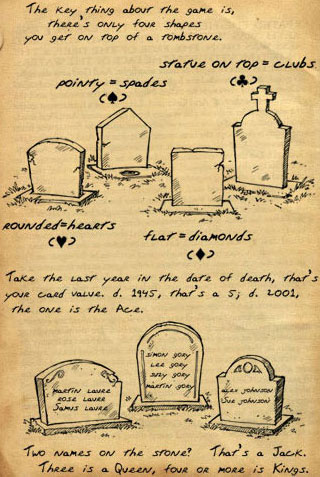 The key thing about the game is,
there's only four shapes
you get on top of a tombstone.
statue on top = clubs
(♣)
pointy = spades
(♠)
rounded = hearts
(♥)
flat = diamonds
(♦)
Take the last year in the date of death, that's
your card value. d. 1945, that's a 5; d. 2001,
the one is the Ace.
simon gory
lee gory
suzy gory
martin gory
martin laure
rose laure
james laure
alex johnson
sue johnson
Two names on the stone? That's a Jack.
Three is a Queen, four or more is Kings.